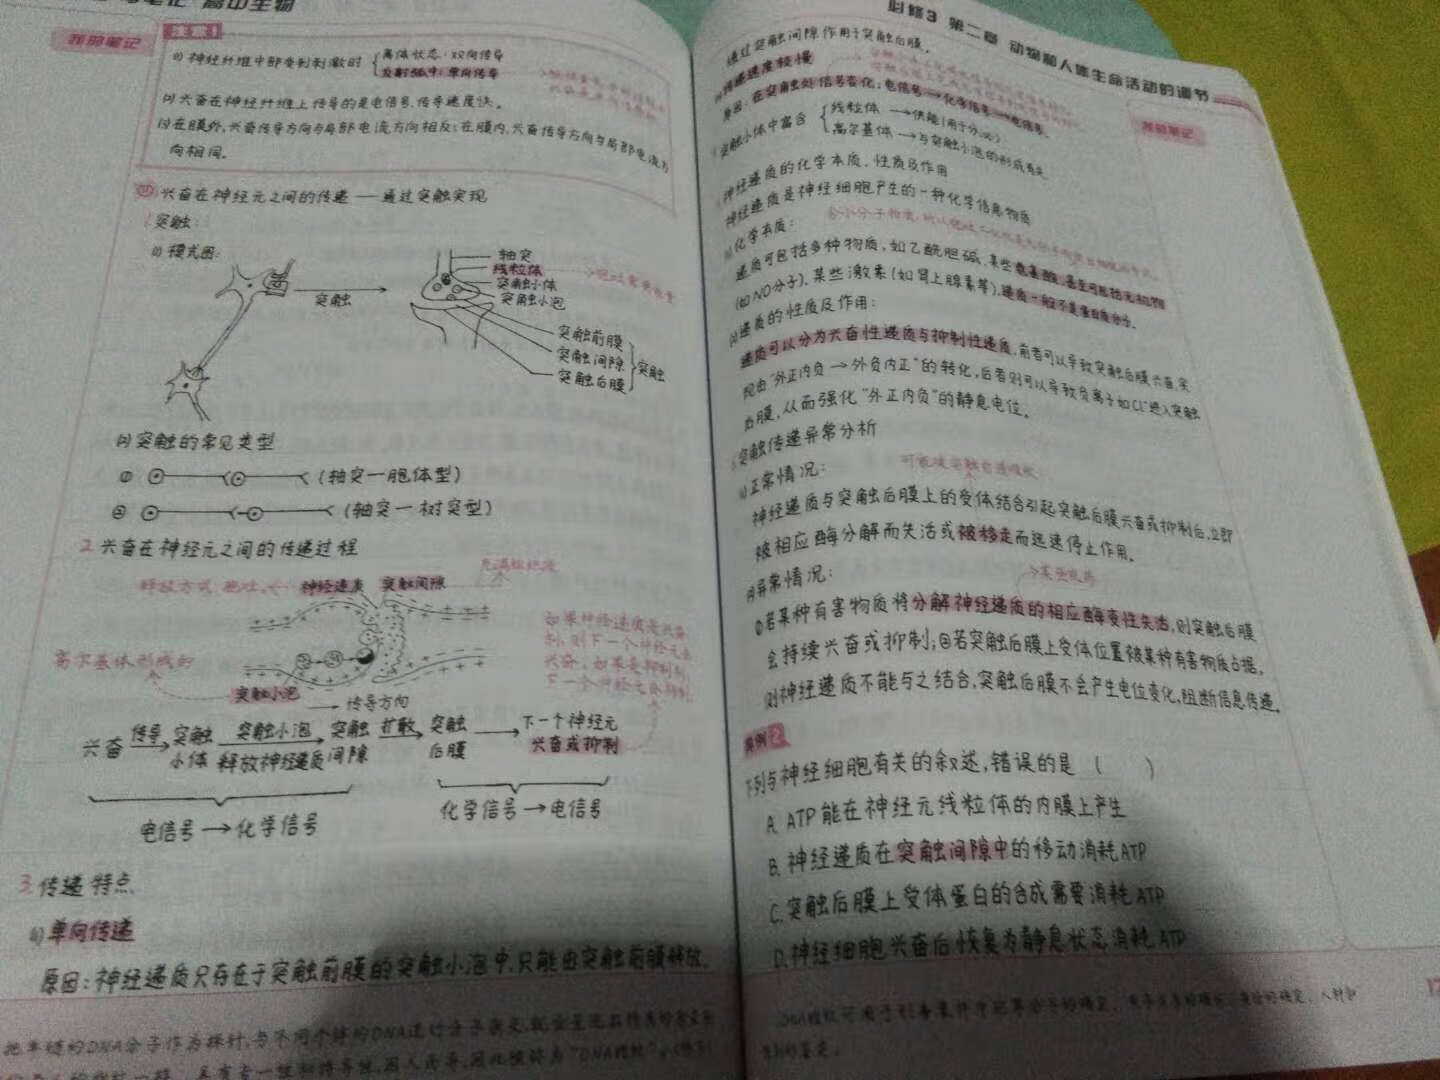 笔记 高中生物
我的笔记
注意!
(1)神经纤维中部受到刺激时
离体状态:双向传导
反射弧中:单向传导
(2)兴奋在神经纤维上传导的是电信号,传导速度快。
(3)在膜外,兴奋传导方向与局部电流方向相反;在膜内,兴奋传导方向与局部电流方
向相同。
(四)兴奋在神经元之间的传递——通过突触实现
1.突触:
(1)模式图:
突触
轴突
线粒体
突触小体
突触小泡
突触前膜
突触间隙
突触后膜
突触
(2)突触的常见类型
① (轴突—胞体型)
② (轴突—树突型)
2.兴奋在神经元之间的传递过程
释放方式:胞吐
神经递质 突触间隙
充满组织液
高尔基体形成的
突触小泡
传导方向
如果神经递质是兴奋
剂,则下一个神经元会
兴奋,如果是抑制剂,
下一个神经元会抑制
兴奋 传导 突触小体 突触小泡 释放神经递质 突触间隙 扩散 突触后膜 下一个神经元 兴奋或抑制
电信号→化学信号
化学信号→电信号
3.传递特点
(1)单向传递
原因:神经递质只存在于突触前膜的突触小泡中,只能由突触前膜释放,
必修3 第二章 动物和人体生命活动的调节
我的笔记
通过突触间隙作用于突触后膜。
(2)传递速度较慢
原因:在突触处信号变化:电信号→化学信号→电信号。
突触小体中富含
线粒体→供能(用于分泌)
高尔基体→与突触小泡的形成有关
神经递质的化学本质、性质及作用
神经递质是神经细胞产生的一种化学信息物质
(1)化学本质:
递质可包括多种物质,如乙酰胆碱、某些氨基酸,甚至可能包括无机物
(如NO分子)、某些激素(如肾上腺素等),递质一般不是蛋白质分子。
(2)递质的性质及作用:
递质可以分为兴奋性递质与抑制性递质,前者可以导致突触后膜兴奋,实
现由“外正内负→外负内正”的转化,后者则可以导致负离子如Cl⁻进入突触
后膜,从而强化“外正内负”的静息电位。
突触传递异常分析
(1)正常情况:
神经递质与突触后膜上的受体结合引起突触后膜兴奋或抑制后,立即
被相应酶分解而失活或被移走而迅速停止作用。
(2)异常情况:
①若某种有害物质将分解神经递质的相应酶变性失活,则突触后膜
会持续兴奋或抑制;②若突触后膜上受体位置被某种有害物质占据,
则神经递质不能与之结合,突触后膜不会产生电位变化,阻断信息传递。
典例2
下列与神经细胞有关的叙述,错误的是( )
A. ATP能在神经元线粒体的内膜上产生
B. 神经递质在突触间隙中的移动消耗ATP
C. 突触后膜上受体蛋白的合成需要消耗ATP
D. 神经细胞兴奋后恢复为静息状态消耗ATP